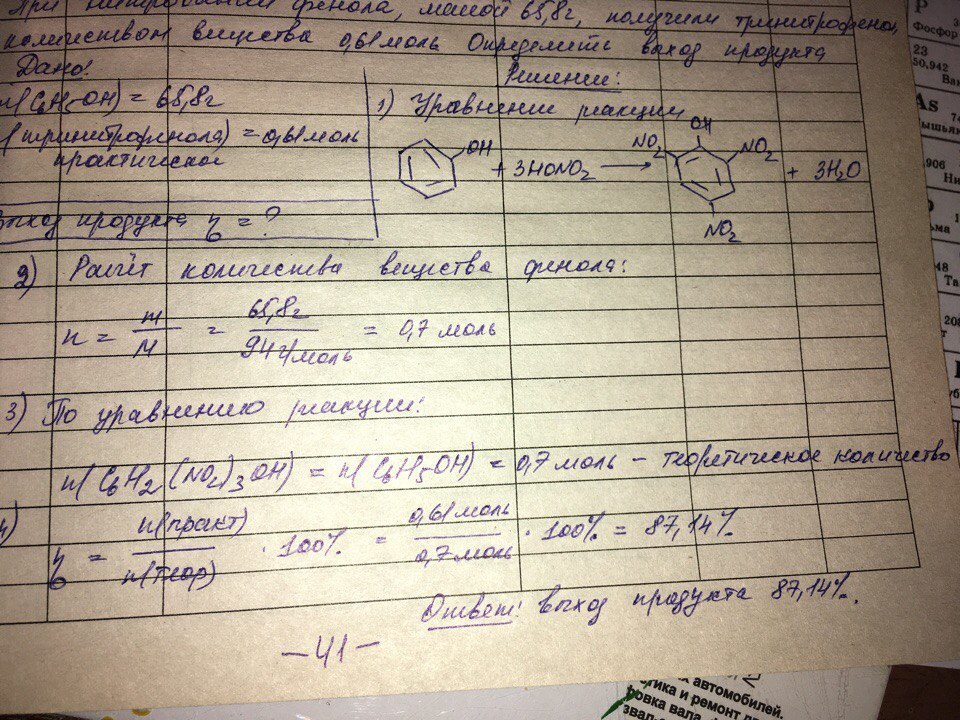 При нитровании фенола, массой 65,8г, получили тринитрофенол,
количеством вещества 0,61 моль Определить выход продукта
Дано:
Решение:
m(C6H5OH) = 65,8г
1) Уравнение реакции
n(тринитрофенола) = 0,61 моль
практическое
OH + 3HONO2 → NO2 OH NO2 NO2 + 3H2O
Выход продукта η = ?
2) Расчёт количества вещества фенола:
n = m/M = 65,8г/94г/моль = 0,7 моль
3) По уравнению реакции:
n(C6H2(NO2)3OH) = n(C6H5OH) = 0,7 моль – теоретическое количество
4)
η = n(практ)/n(теор) · 100% = 0,61 моль/0,7 моль · 100% = 87,14%
Ответ: выход продукта 87,14%.
–41–
P
Фосфор
23
50,942
As
74
ышьяк
,906
Ни
1
ьма
48
Та
208
автомобилей.
тика и ремонт
ровка вала,